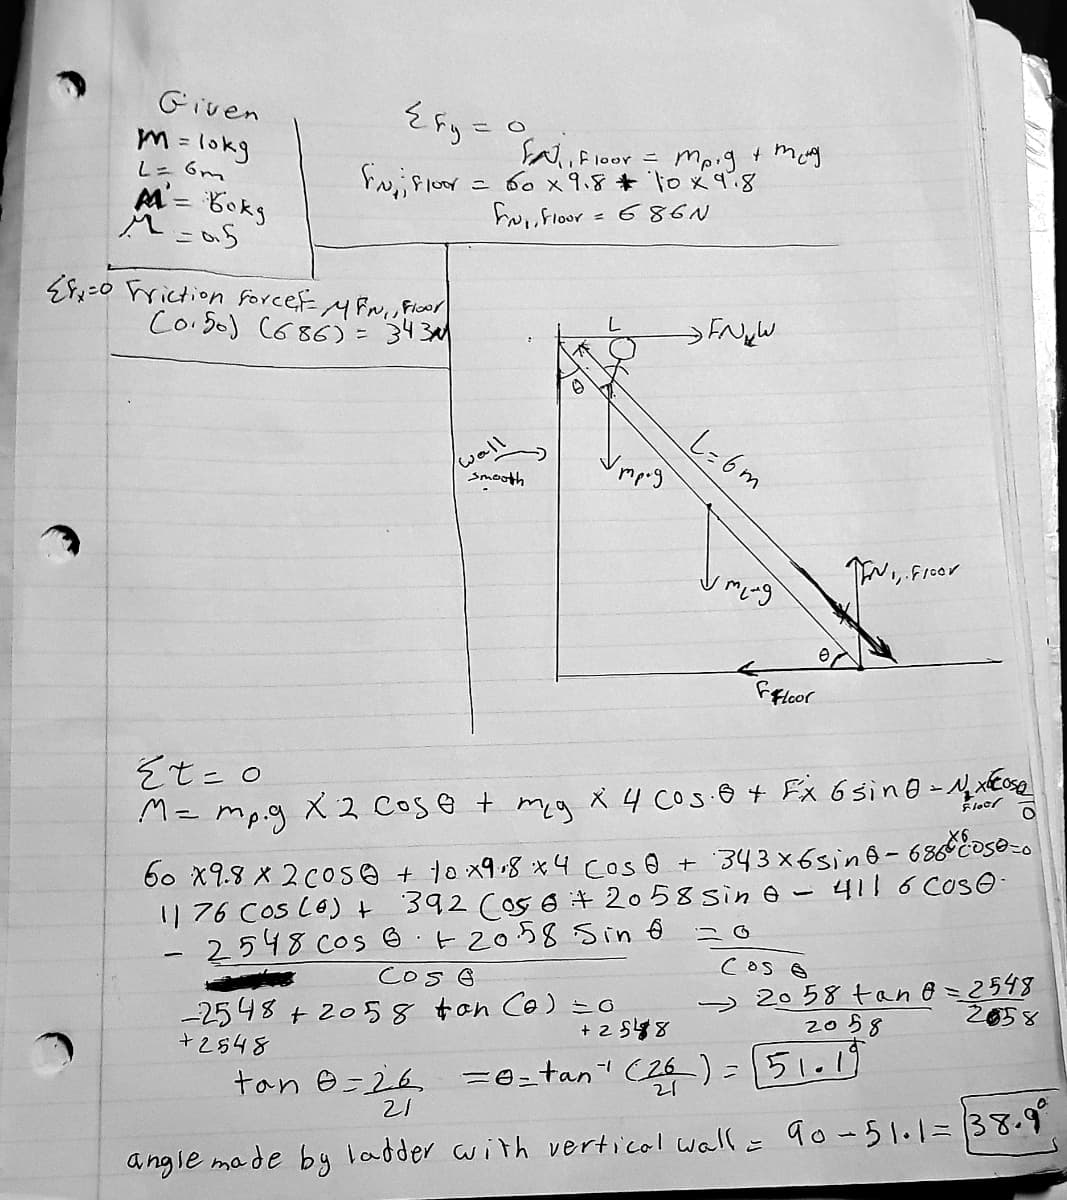 Given
m = 10kg
L = 6m
M' = 60kg
μ = 0.5
Σ Fy = 0
FN1, Floor = mp.g + mL.g
FN1, Floor = 60 x 9.8 + 10 x 9.8
FN1, Floor = 686N
ΣFx=0 Friction force F = μ FN1, Floor
(0.50) (686) = 343N
L
FN2W
θ
L=6m
wall
smooth
mp.g
mL.g
FN1, Floor
θ
F Floor
Σt = 0
M = mp.g x 2 cos θ + mLg x 4 cos.θ + Fx 6 sin θ - N1 x 6 cosθ = 0
Floor
60 x 9.8 x 2 cos θ + 10 x 9.8 x 4 cos θ + 343 x 6 sin θ - 686 x 6 cosθ = 0
1176 cos (θ) + 392 cos θ + 2058 sin θ - 4116 cos θ.
- 2548 cos θ + 2058 sin θ = 0
cos θ cos θ
-2548 + 2058 tan (θ) = 0 → 2058 tan θ = 2548
+2548 +2548 2058 2058
tan θ = 26 = θ = tan⁻¹ (26) = 51.1°
21 21
angle made by ladder with vertical wall = 90 - 51.1 = 38.9°